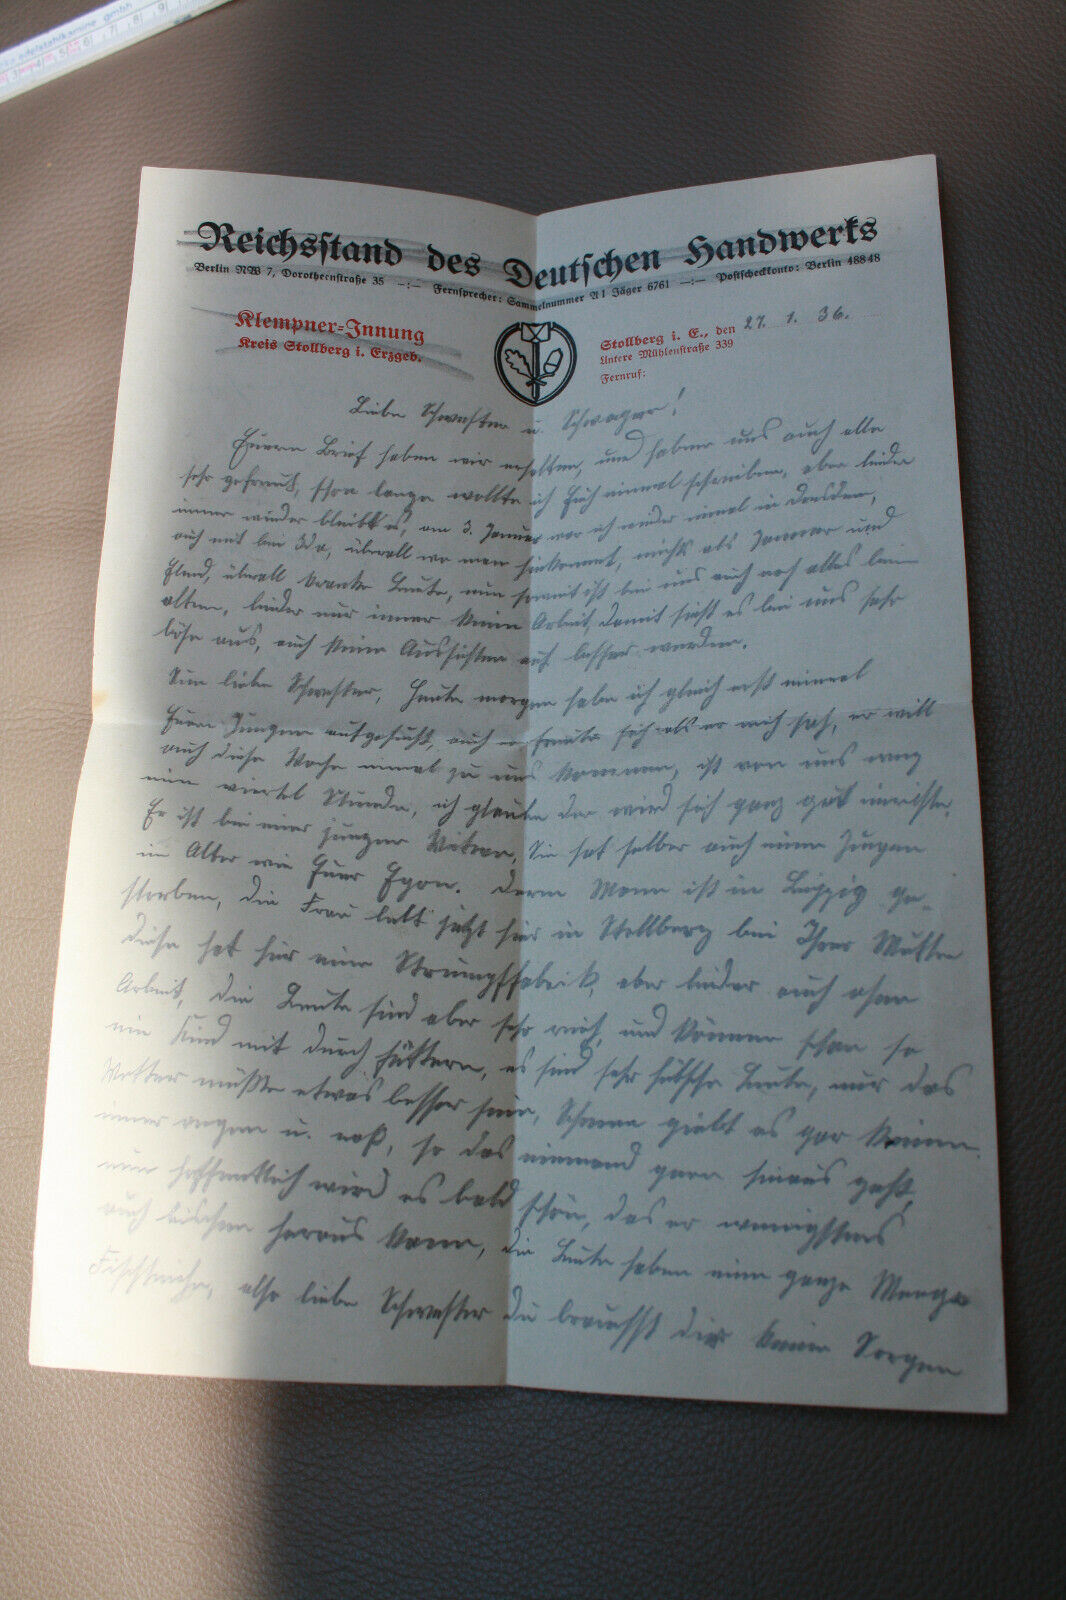 edelstahlkamine gmbh
Reichsstand des Deutschen Handwerks
Berlin NW 7, Dorotheenstraße 35 –:– Fernsprecher: Sammelnummer A 1 Jäger 6761 –:– Postscheckkonto: Berlin 48848
Klempner-Innung
Kreis Stollberg i. Erzgeb.
Stollberg i. E., den 27. 1. 36.
Untere Mühlenstraße 339
Fernruf:
Liebe Schwester u. Schwager!
Euern Brief haben wir erhalten, und haben uns auch alle
sehr gefreut, schon lange wollte ich Euch einmal schreiben, aber leider
immer wieder bleibt es, am 3. Januar war ich wieder einmal in Dresden,
auch mit bei, überall wo man hinkommt, nichts als Jammer und
Elend, überall kranke Leute, nun sonst ist bei uns auch noch alles beim
alten, leider nur immer keine Arbeit, damit sieht es bei uns sehr
böse aus, auch keine Aussichten auf besser werden.
Nun liebe Schwester, heute morgen habe ich gleich erst einmal
Euern Jungen aufgesucht, auch er freute sich als er mich sah, er will
auch diese Woche einmal zu uns kommen, ist von uns weg
eine viertel Stunde, ich glaube der wird sich ganz gut
Er ist bei einer jungen Witwe, Sie hat selber auch einen Jungen
im Alter wie Euer Egon. Deren Mann ist in Leipzig ge-
storben, die Frau lebt jetzt hier in Stollberg bei Ihrer Mutter
diese hat hier eine Strumpffabrik, aber leider auch ohne
Arbeit, die Leute sind aber sehr reich, und können schon so
ein Kind mit durch füttern, es sind sehr hübsche Leute, nur das
Wetter müßte etwas besser sein, Schnee giebt es gar keinen
immer regen u. naß, so das niemand gern hinaus geht,
nun hoffentlich wird es bald schön, das er wenigstens
auch bischen heraus kann, die Leute haben eine ganze Menge
Fischteiche, also liebe Schwester du brauchst dir keine Sorgen